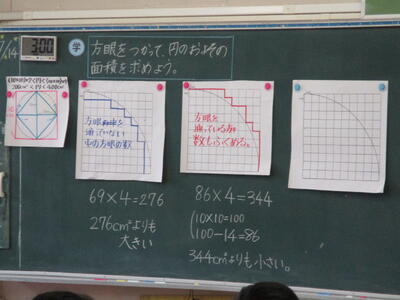 7/14
3:00
学
方眼をつかって、円のおよその
面積を求めよう。
200cm²<円<400cm²
方眼
通っていない
方眼の数
方眼を
通っている方眼
数もふくめる。
69×4=276
276cm²よりも
大きい
86×4=344
10×10=100
100-14=86
344cm²よりも小さい。